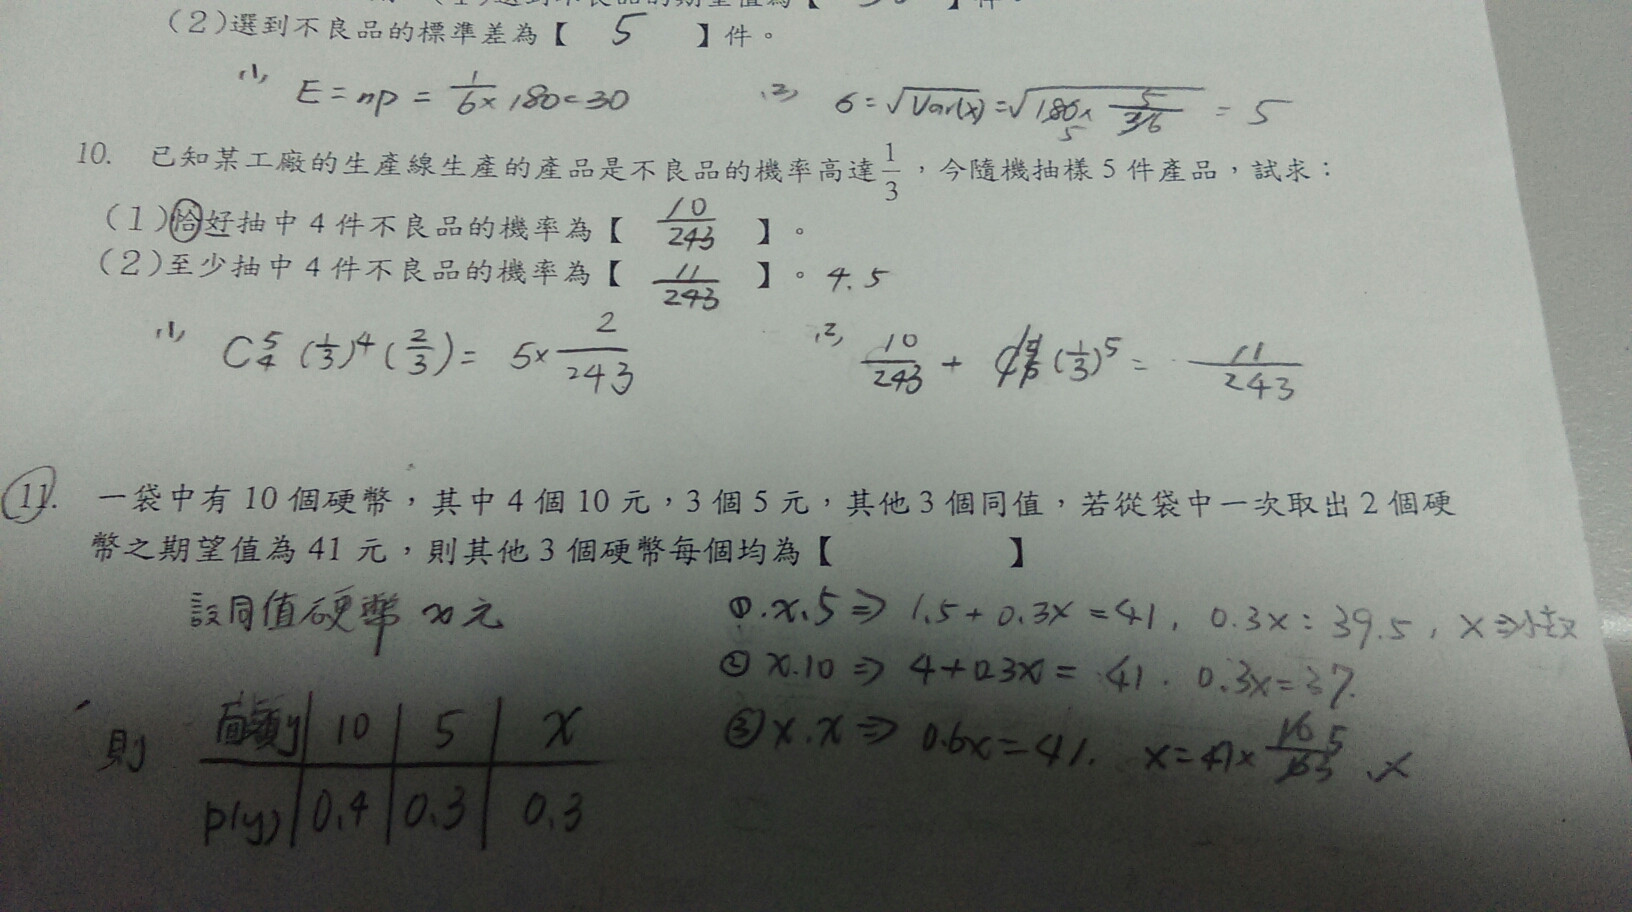 (2)選到不良品的標準差為【 5 】件。
(1) E=np=1/6×180=30 (2) σ=√Var(x)=√180×5/36=5
10. 已知某工廠的生產線生產的產品是不良品的機率高達1/3，今隨機抽樣5件產品，試求：
(1)恰好抽中4件不良品的機率為【 10/243 】。
(2)至少抽中4件不良品的機率為【 11/243 】。4.5
(1) C⁵₄(1/3)⁴(2/3)=5×2/243 (2) 10/243+(1/3)⁵=11/243
11. 一袋中有10個硬幣，其中4個10元，3個5元，其他3個同值，若從袋中一次取出2個硬
幣之期望值為41元，則其他3個硬幣每個均為【 】
設同值硬幣x元
則
y 10 5 x
p(y) 0.4 0.3 0.3
①.x.5⇒1.5+0.3x=41, 0.3x=39.5, x⇒小數
②x.10⇒4+0.3x=41. 0.3x=37.
③x.x⇒0.6x=41. x=41×